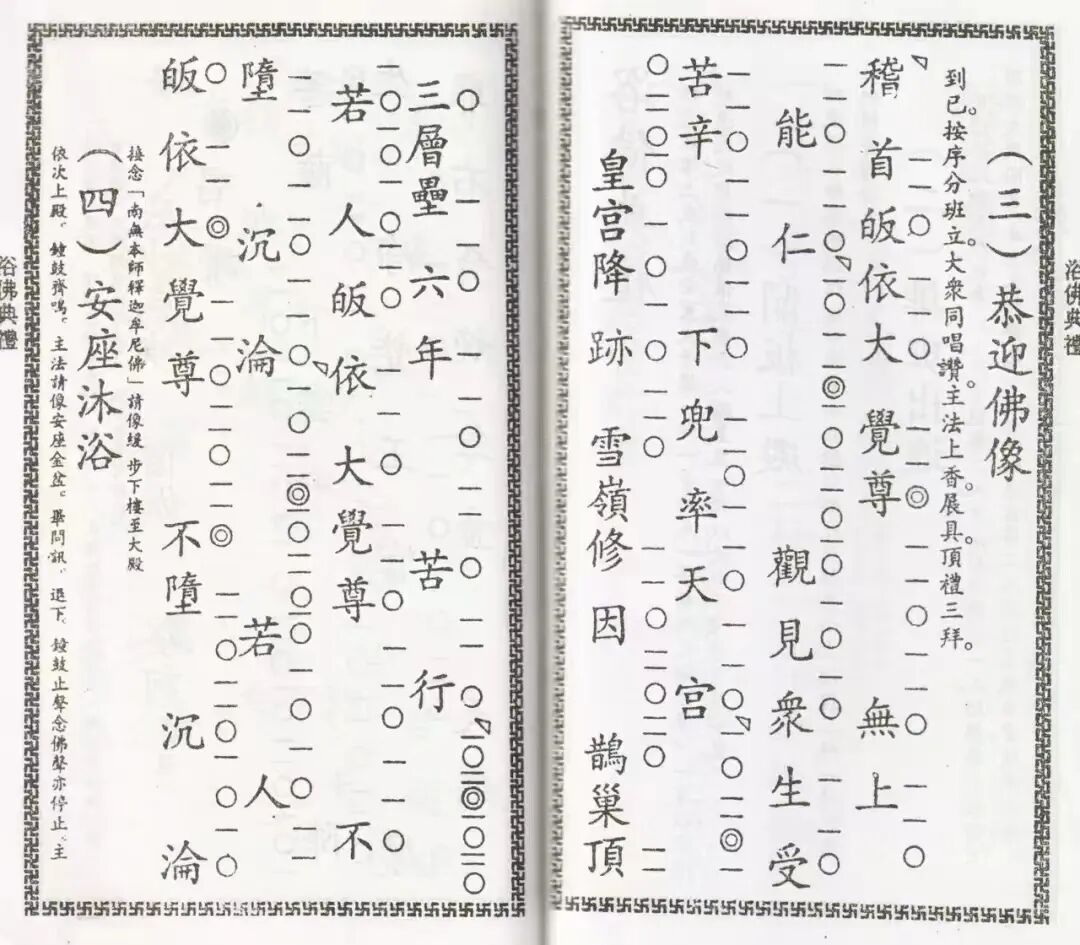 浴佛典禮
（三）恭迎佛像
到已。按序分班立。大衆同唱讚。主法上香。展具。頂禮三拜。
稽首皈依大覺尊無上
能仁觀見衆生受
苦辛下兜率天宮
皇宮降跡雪嶺修因鵲巢頂
三層壘六年苦行
若人皈依大覺尊不
墮沉淪若人
皈依大覺尊不墮沉淪
接念「南無本師釋迦牟尼佛」請像緩步下樓至大殿
（四）安座沐浴
依次上殿、鐘鼓齊鳴。主法請像安座金盆。畢問訊、退下、鐘鼓止聲念佛聲亦停止、主
浴佛典禮